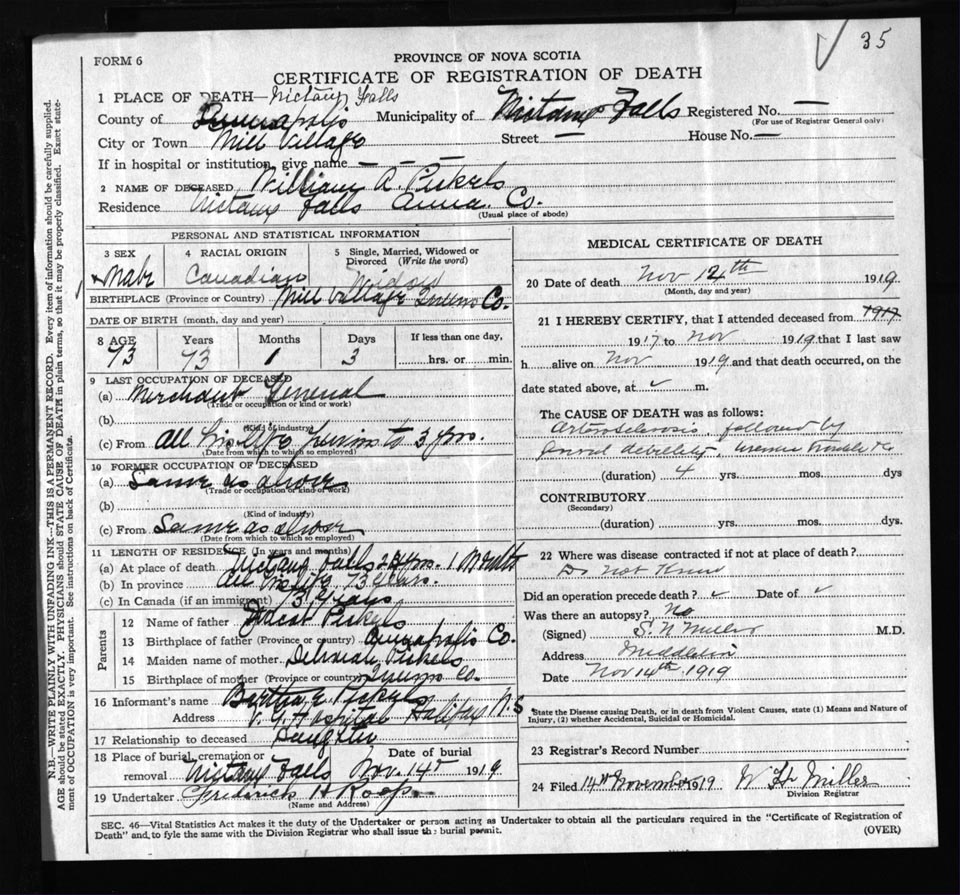 35
FORM 6
PROVINCE OF NOVA SCOTIA
CERTIFICATE OF REGISTRATION OF DEATH
1 PLACE OF DEATH—Nictaux Falls
County of Annapolis Municipality of Nictaux Falls Registered No. —
(For use of Registrar General only)
City or Town Mill Village Street — House No. —
If in hospital or institution, give name — — —
2 NAME OF DECEASED William A. Pickels
Residence Nictaux Falls Anna. Co.
(Usual place of abode)
PERSONAL AND STATISTICAL INFORMATION
3 SEX 4 RACIAL ORIGIN 5 Single, Married, Widowed or Divorced (Write the word)
Male Canadian Widow
BIRTHPLACE (Province or Country) Mill Village Queens Co.
DATE OF BIRTH (month, day and year)
8 AGE Years Months Days If less than one day,
73 73 1 3 hrs. or min.
9 LAST OCCUPATION OF DECEASED
(a) Merchant General
(Trade or occupation or kind or work)
(b)
(Kind of industry)
(c) From All his life previous to 3 yrs.
(Date from which to which so employed)
10 FORMER OCCUPATION OF DECEASED
(a) Same as above
(Trade or occupation or kind of work)
(b)
(Kind of industry)
(c) From Same as above
(Date from which to which so employed)
11 LENGTH OF RESIDENCE (In years and months)
(a) At place of death Nictaux Falls yrs. 1 Month
(b) In province All his life 73 years.
(c) In Canada (if an immigrant) 73 years
Parents
12 Name of father Pickels
13 Birthplace of father (Province or country) Annapolis Co.
14 Maiden name of mother Pickels
15 Birthplace of mother (Province or country) Queens Co.
16 Informant's name Bertha E Pickels
Address V. G. Hospital Halifax N.S
17 Relationship to deceased Daughter
18 Place of burial, cremation or removal Nictaux Falls Date of burial Nov. 14th 1919
19 Undertaker Frederick H Roop
(Name and Address)
MEDICAL CERTIFICATE OF DEATH
20 Date of death Nov 12th 1919
(Month, day and year)
21 I HEREBY CERTIFY, that I attended deceased from 1917
1917 to Nov 1919 that I last saw
h alive on Nov 1919 and that death occurred, on the
date stated above, at m.
The CAUSE OF DEATH was as follows:
Arteriosclerosis, followed by
general debility, uremic trouble &c
(duration) 4 yrs. mos. dys
CONTRIBUTORY
(Secondary)
(duration) yrs. mos. dys.
22 Where was disease contracted if not at place of death?
Do not know
Did an operation precede death? Date of
Was there an autopsy? No
(Signed) S. N Miller M.D.
Address Middleton
Date Nov 14th 1919
State the Disease causing Death, or in death from Violent Causes, state (1) Means and Nature of Injury, (2) whether Accidental, Suicidal or Homicidal.
23 Registrar's Record Number
24 Filed 14th November 1919 W H Miller
Division Registrar
SEC. 46—Vital Statistics Act makes it the duty of the Undertaker or person acting as Undertaker to obtain all the particulars required in the "Certificate of Registration of
Death" and to fyle the same with the Division Registrar who shall issue the burial permit. (OVER)
N.B.—WRITE PLAINLY WITH UNFADING INK—THIS IS A PERMANENT RECORD. Every item of information should be carefully supplied.
AGE should be stated EXACTLY. PHYSICIANS should STATE CAUSE OF DEATH in plain terms, so that it may be properly classified. Exact state-
ment of OCCUPATION is very important. See instructions on back of Certificate.